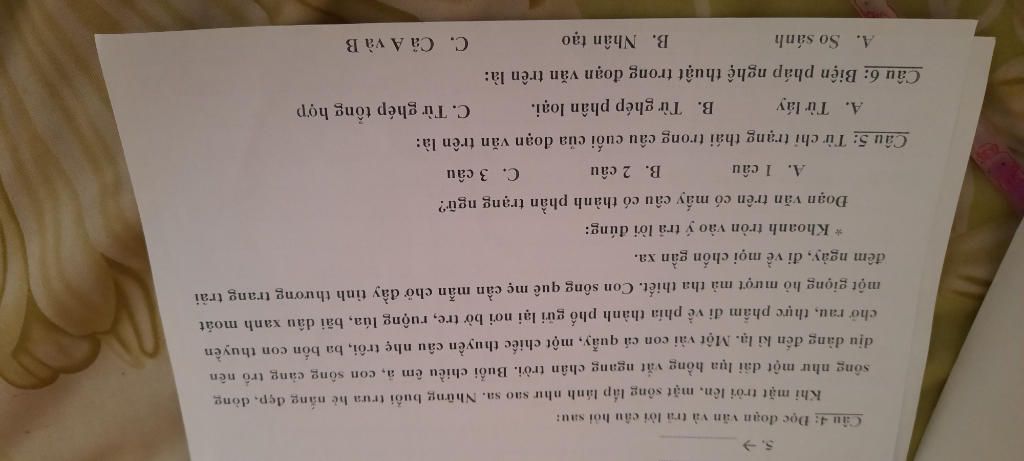 5. →
Câu 4: Đọc đoạn văn và trả lời câu hỏi sau:
Khi mặt trời lên, mặt sông lấp lánh như sao sa. Những buổi trưa hè nắng đẹp, dòng
sông như một dải lụa hồng vắt ngang chân trời. Buổi chiều êm ả, con sông càng trở nên
dịu dàng đến kì lạ. Một vài con cá quẫy, một chiếc thuyền câu nhẹ trôi, ba bốn con thuyền
chở rau, thực phẩm đi về phía thành phố gửi lại nơi bờ tre, ruộng lúa, bãi dâu xanh moát
một giọng hò mượt mà tha thiết. Con sông quê mẹ cần mẫn chở đầy tình thương trang trải
đêm ngày, đi về mọi chốn gần xa.
* Khoanh tròn vào ý trả lời đúng:
Đoạn văn trên có mấy câu có thành phần trạng ngữ?
A. 1 câu B. 2 câu C. 3 câu
Câu 5: Từ chỉ trạng thái trong câu cuối của đoạn văn trên là:
A. Từ láy B. Từ ghép phân loại. C. Từ ghép tổng hợp
Câu 6: Biện pháp nghệ thuật trong đoạn văn trên là:
A. So sánh B. Nhân tạo C. Cả A và B